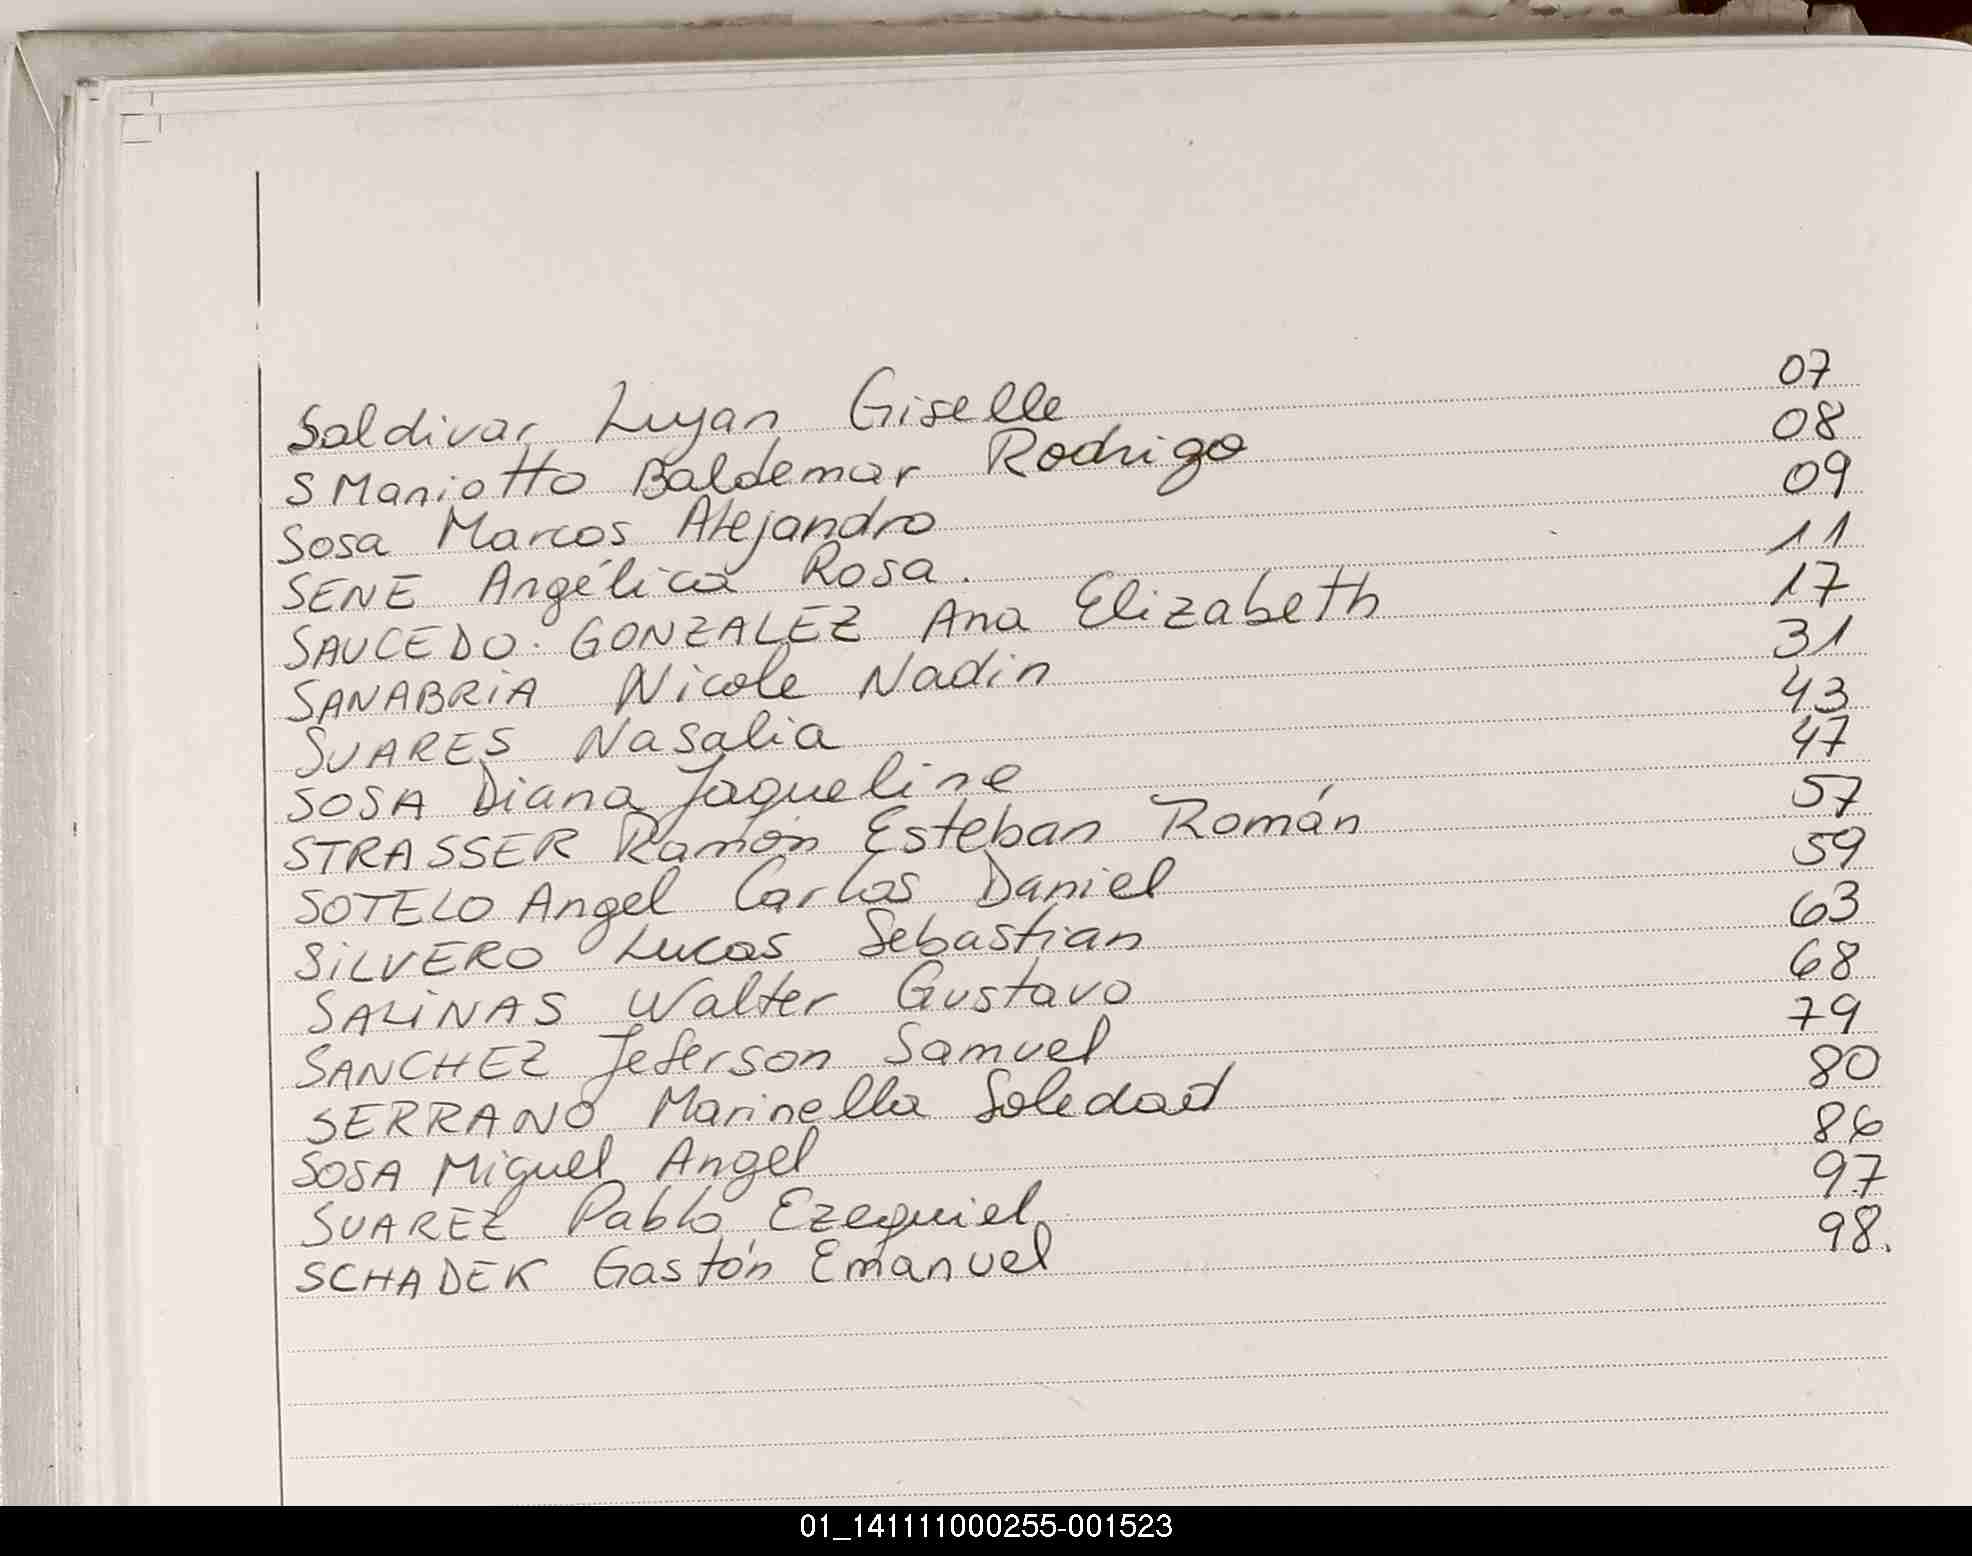 Saldivar Lujan Giselle 07
SManiotto Baldemar Rodrigo 08
Sosa Marcos Alejandro 09
SENE Angélica Rosa. 11
SAUCEDO. GONZALEZ Ana Elizabeth 17
SANABRIA Nicole Nadin 31
SUARES Nasalia 43
SOSA Diana Jaqueline 47
STRASSER Ramón Esteban Román 57
SOTELO Angel Carlos Daniel 59
SILVERO Lucas Sebastian 63
SALINAS Walter Gustavo 68
SANCHEZ Jeferson Samuel 79
SERRANO Marinella Soledad 80
SOSA Miguel Angel 86
SUAREZ Pablo Ezequiel 97
SCHADEK Gastón Emanuel 98.
01_141111000255-001523